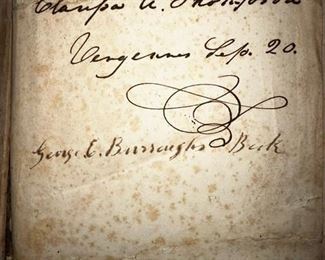 Clarisa A. Thompson
Vergennes Sep. 20.
George E. Burroughs Book